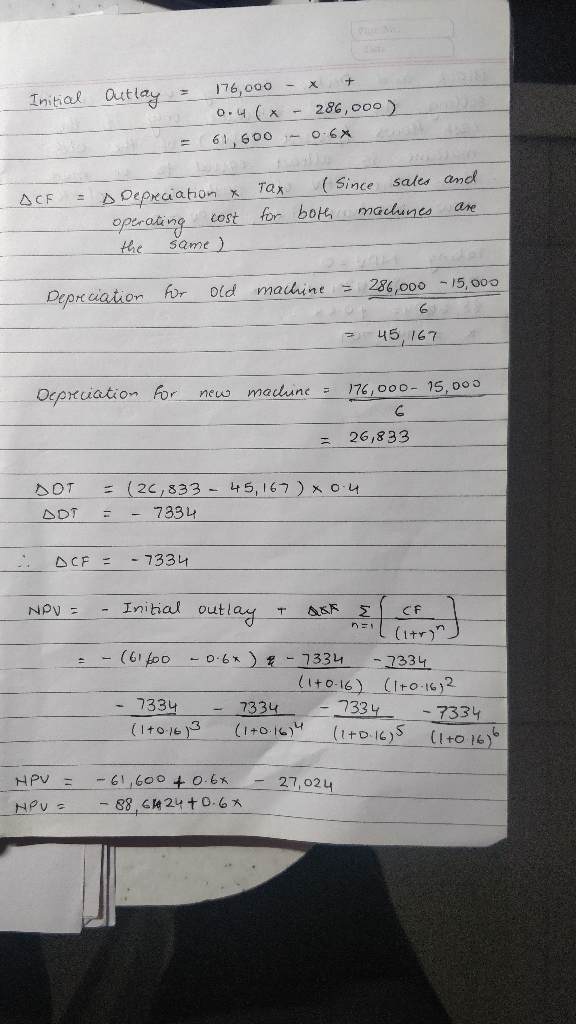 Initial Outlay = 176,000 - x +
0.4 (x - 286,000)
= 61,600 - 0.6x
ΔCF = Δ Depreciation x Tax (Since sales and
operating cost for both machines are
the same)
Depreciation for old machine = 286,000 - 15,000
6
= 45,167
Depreciation for new machine = 176,000 - 15,000
6
= 26,833
ΔDT = (26,833 - 45,167) x 0.4
ΔDT = - 7334
∴ ΔCF = - 7334
NPV = - Initial outlay + Σ n=1 [ CF / (1+r)^n ]
= - (61600 - 0.6x) - 7334 - 7334
(1+0.16) (1+0.16)^2
- 7334 - 7334 - 7334 - 7334
(1+0.16)^3 (1+0.16)^4 (1+0.16)^5 (1+0.16)^6
NPV = - 61,600 + 0.6x - 27,024
NPV = - 88,624 + 0.6x